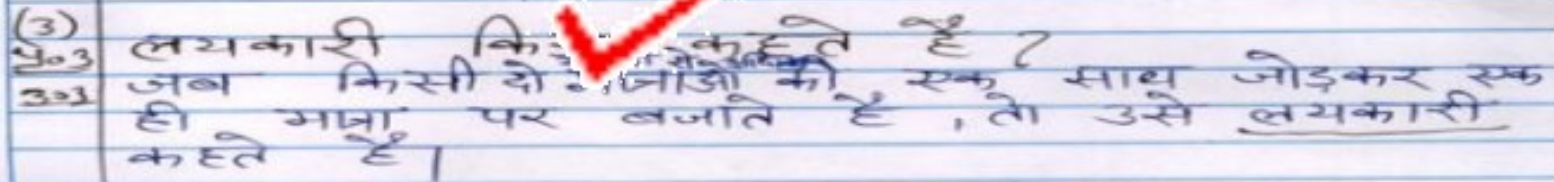 (3)
प्र०3 लयकारी कहते है ?
उ०3 जब किसी दो को एक साथ जोड़कर एक
ही मात्रा पर बजाते है , तो उसे लयकारी
कहते है |